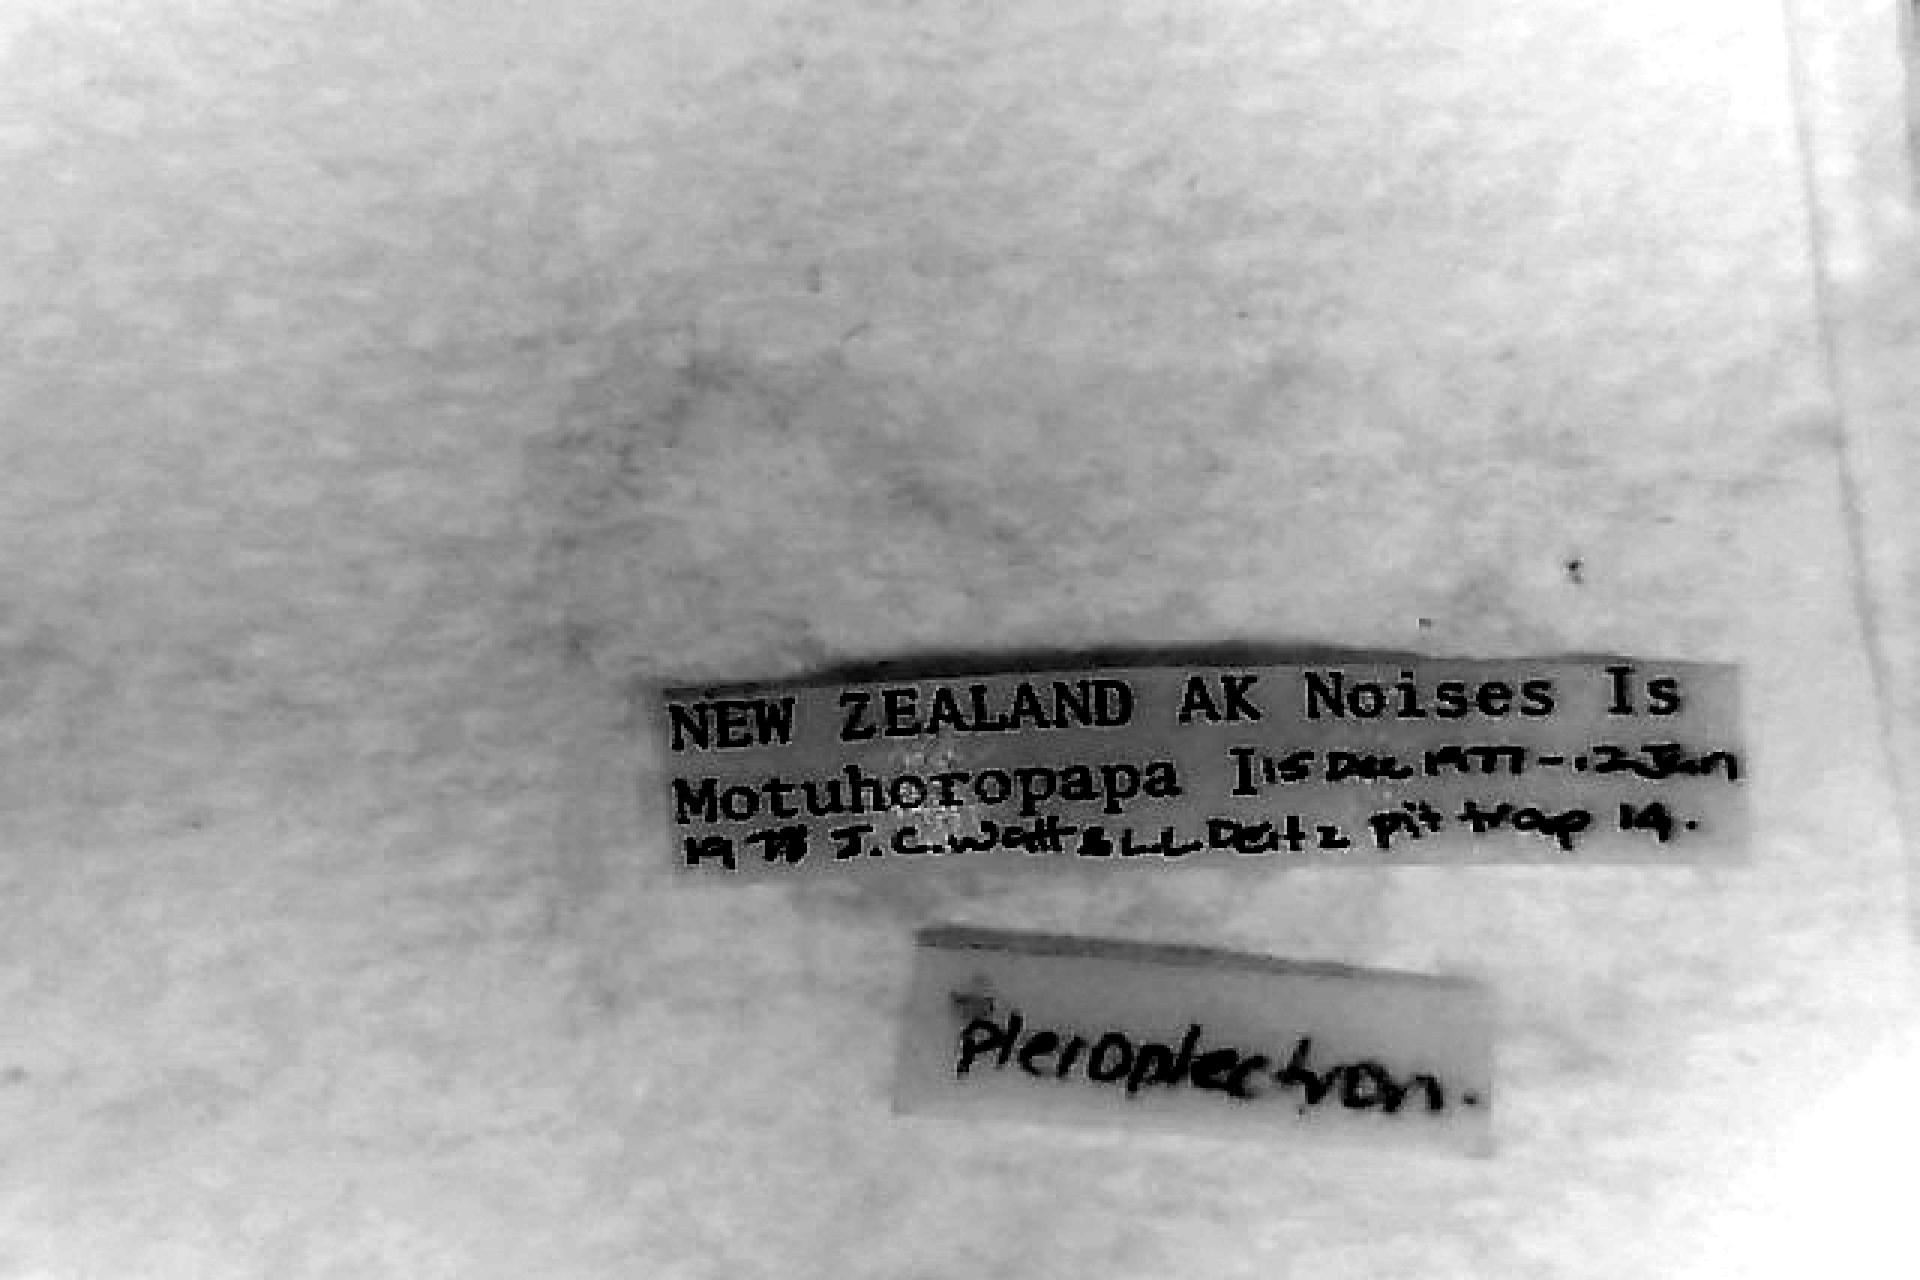 NEW ZEALAND AK Noises Is
Motuhoropapa I 15 Dec 1977 - 12 Jan
1978 J.C. Watt & L.L. Deitz pit trap 19.
Pleroplectron.